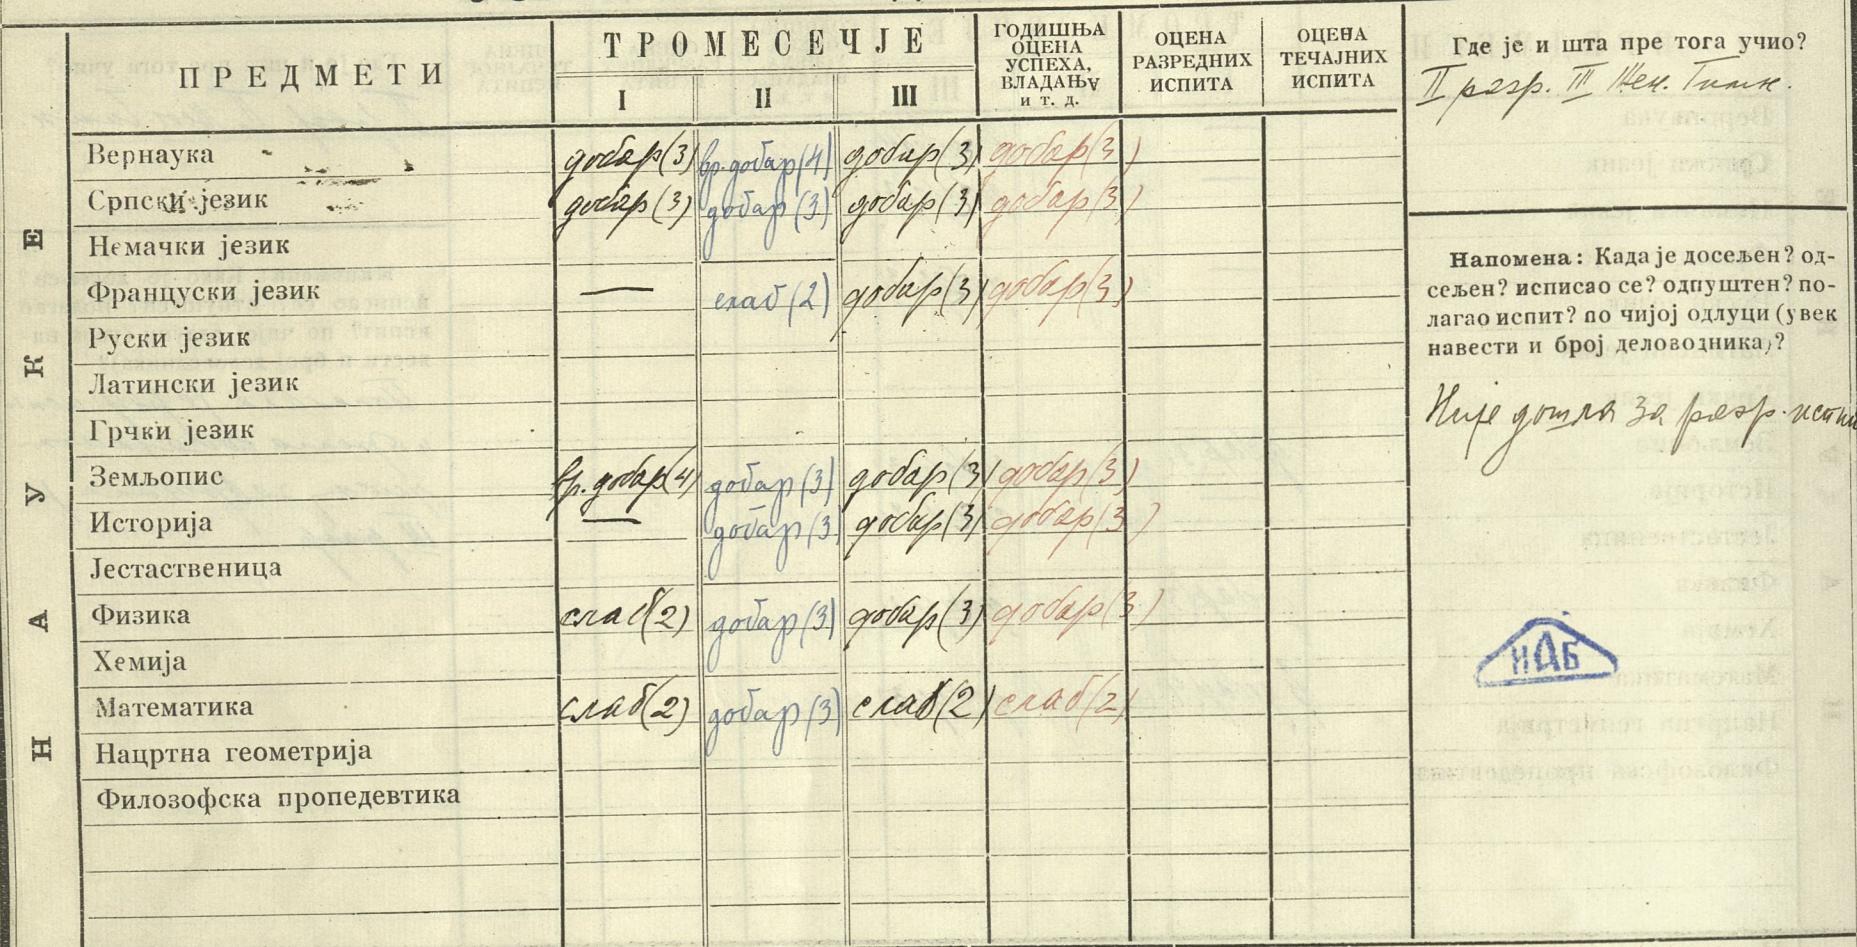 ПРЕДМЕТИ
ТРОМЕСЕЧЈЕ
I II III
ГОДИШЊА
ОЦЕНА
УСПЕХА,
ВЛАДАЊА
и т. д.
ОЦЕНА
РАЗРЕДНИХ
ИСПИТА
ОЦЕНА
ТЕЧАЈНИХ
ИСПИТА
НАУКЕ
Вернаука добар (3) вр. добар (4) добар (3) добар (3)
Српски језик добар (3) добар (3) добар (3) добар (3)
Немачки језик
Француски језик — слаб (2) добар (3) добар (3)
Руски језик
Латински језик
Грчки језик
Земљопис вр. добар (4) добар (3) добар (3) добар (3)
Историја — добар (3 добар (3) добар (3)
Јестаственица
Физика слаб (2) добар (3) добар (3) добар (3)
Хемија
Математика слаб (2) добар (3) слаб (2) слаб (2)
Нацртна геометрија
Филозофска пропедевтика
Где је и шта пре тога учио?
II разр. III Жен. Гимн.
Напомена: Када је досељен? од-
сељен? исписао се? одпуштен? по-
лагао испит? по чијој одлуци (увек
навести и број деловодника)?
Није дошла за разр. испит
ИАБ